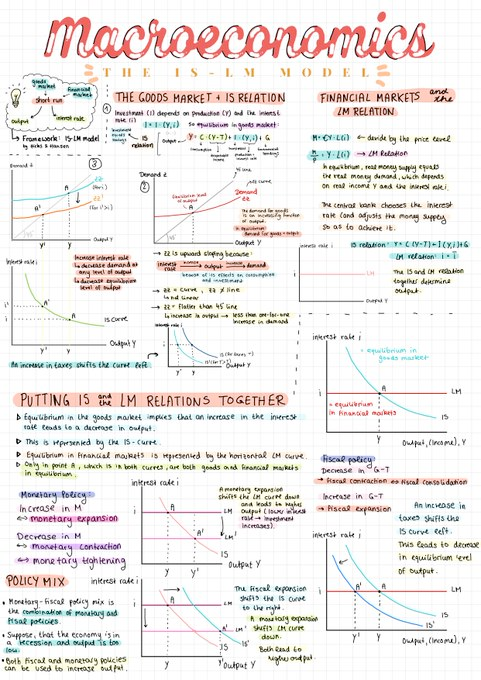 Macroeconomics
THE IS-LM MODEL
goods market
financial market
short run
output
interest rate
Framework: IS-LM model
by Hicks & Hansen
THE GOODS MARKET + IS RELATION
Investment (I) depends on Production (Y) and the interest
rate (i)
I = I (Y, i)
So equilibrium in goods market:
IS relation
Y = C (Y-T) + I (Y, i) + G
FINANCIAL MARKETS and the
LM RELATION
M = €Y · L(i)
divide by the price level
M/P = Y · L(i)
LM Relation
In equilibrium, real money supply equals
the real money demand, which depends
on real income Y and the interest rate i.
The central bank chooses the interest
rate (and adjusts the money supply
so as to achieve it.
IS relation: Y = C (Y-T) + I (Y, i) + G
LM relation: i = i
interest rate i
i
LM
Output Y
The IS and LM relation
together determine
output.
3
Demand Z
A
A'
Y'
Y
Output Y
2
Demand Z
45° line
Demand
ZZ
Equilibrium level
of output
A
The demand for goods
is an increasing function
of output.
In equilibrium:
demand for goods = output
45°
Y
Output Y
Interest rate, i
i'
i
A'
A
IS curve
Y'
Y
Output Y
Increase interest rate
decrease demand at
any level of output
decrease equilibrium
level of output
ZZ is upward sloping because:
increase
interest rate
increase
output
increase
demand
because of its effects on consumption
and investment
ZZ = curve, ZZ ≠ line
not linear
ZZ = flatter than 45° line
increase in output → less than one-for-one
increase in demand
An increase in taxes shifts the curve left
interest rate i
i
Y'
Y
Output Y
PUTTING IS and the LM RELATIONS TOGETHER
Equilibrium in the goods market implies that an increase in the interest
rate leads to a decrease in output.
This is represented by the IS-curve.
Equilibrium in financial markets is represented by the horizontal LM curve.
Only in point A, which is in both curves, are both goods and financial markets
in equilibrium.
interest rate i
= equilibrium in
goods market
A
i
LM
= equilibrium
in financial markets
IS
Y
Output, (Income), Y
Monetary Policy:
Increase in M
↔ monetary expansion
Decrease in M
↔ monetary contraction
↔ monetary tightening
interest rate i
A
LM
A'
LM'
IS
Y
Y'
Output Y
A monetary expansion
shifts the LM curve down
and leads to higher
Output (lower interest
rate → investment
increases).
Fiscal policy:
Decrease in G-T
→ fiscal contraction ↔ fiscal consolidation
Increase in G-T
→ fiscal expansion
An increase in
taxes shifts the
IS curve left.
This leads to decrease
in equilibrium level
of output.
interest rate i
i
A'
A
LM
IS
IS'
Y'
Y
Output, (Income), Y
POLICY MIX
Monetary-fiscal policy mix is
the combination of monetary and
fiscal policies.
Suppose, that the economy is in
a recession and output is too
low.
Both fiscal and monetary policies
can be used to increase output.
interest rate i
A
LM
A'
LM'
IS
IS'
Y
Y'
Output Y
The fiscal expansion
shifts the IS curve
to the right.
A monetary expansion
shifts LM curve
down.
Both lead to
higher output.